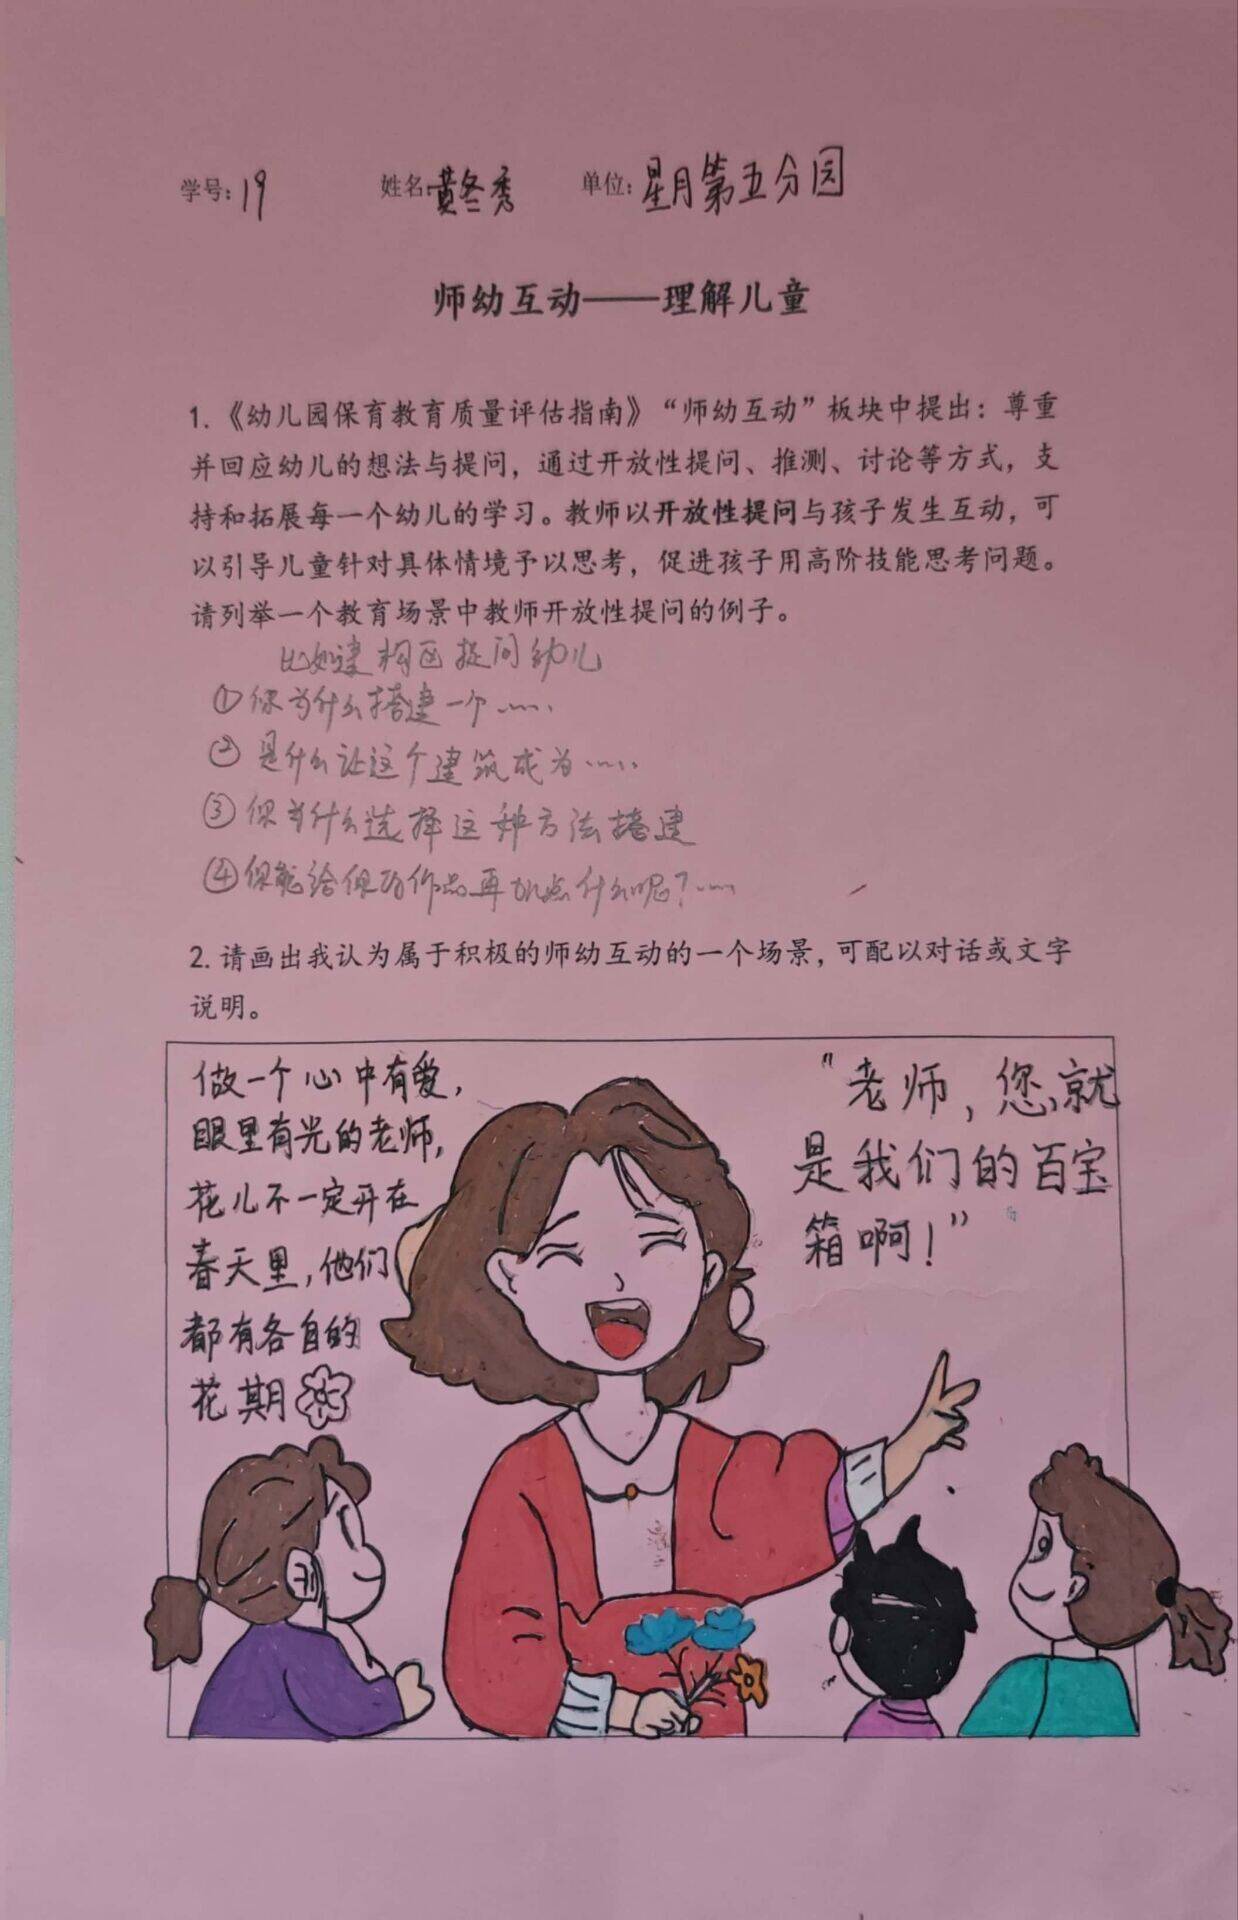 学号：19 姓名：黄冬秀 单位：星月第五分园
师幼互动——理解儿童
1.《幼儿园保育教育质量评估指南》“师幼互动”板块中提出：尊重
并回应幼儿的想法与提问，通过开放性提问、推测、讨论等方式，支
持和拓展每一个幼儿的学习。教师以开放性提问与孩子发生互动，可
以引导儿童针对具体情境予以思考，促进孩子用高阶技能思考问题。
请列举一个教育场景中教师开放性提问的例子。
比如建构区提问幼儿
①你为什么搭建一个……
②是什么让这个建筑成为……
③你为什么选择这种方法搭建
④你能给你的作品再加点什么呢？……
2.请画出我认为属于积极的师幼互动的一个场景，可配以对话或文字
说明。
做一个心中有爱，
眼里有光的老师，
花儿不一定开在
春天里，他们
都有各自的
花期
“老师，您就
是我们的百宝
箱啊！”